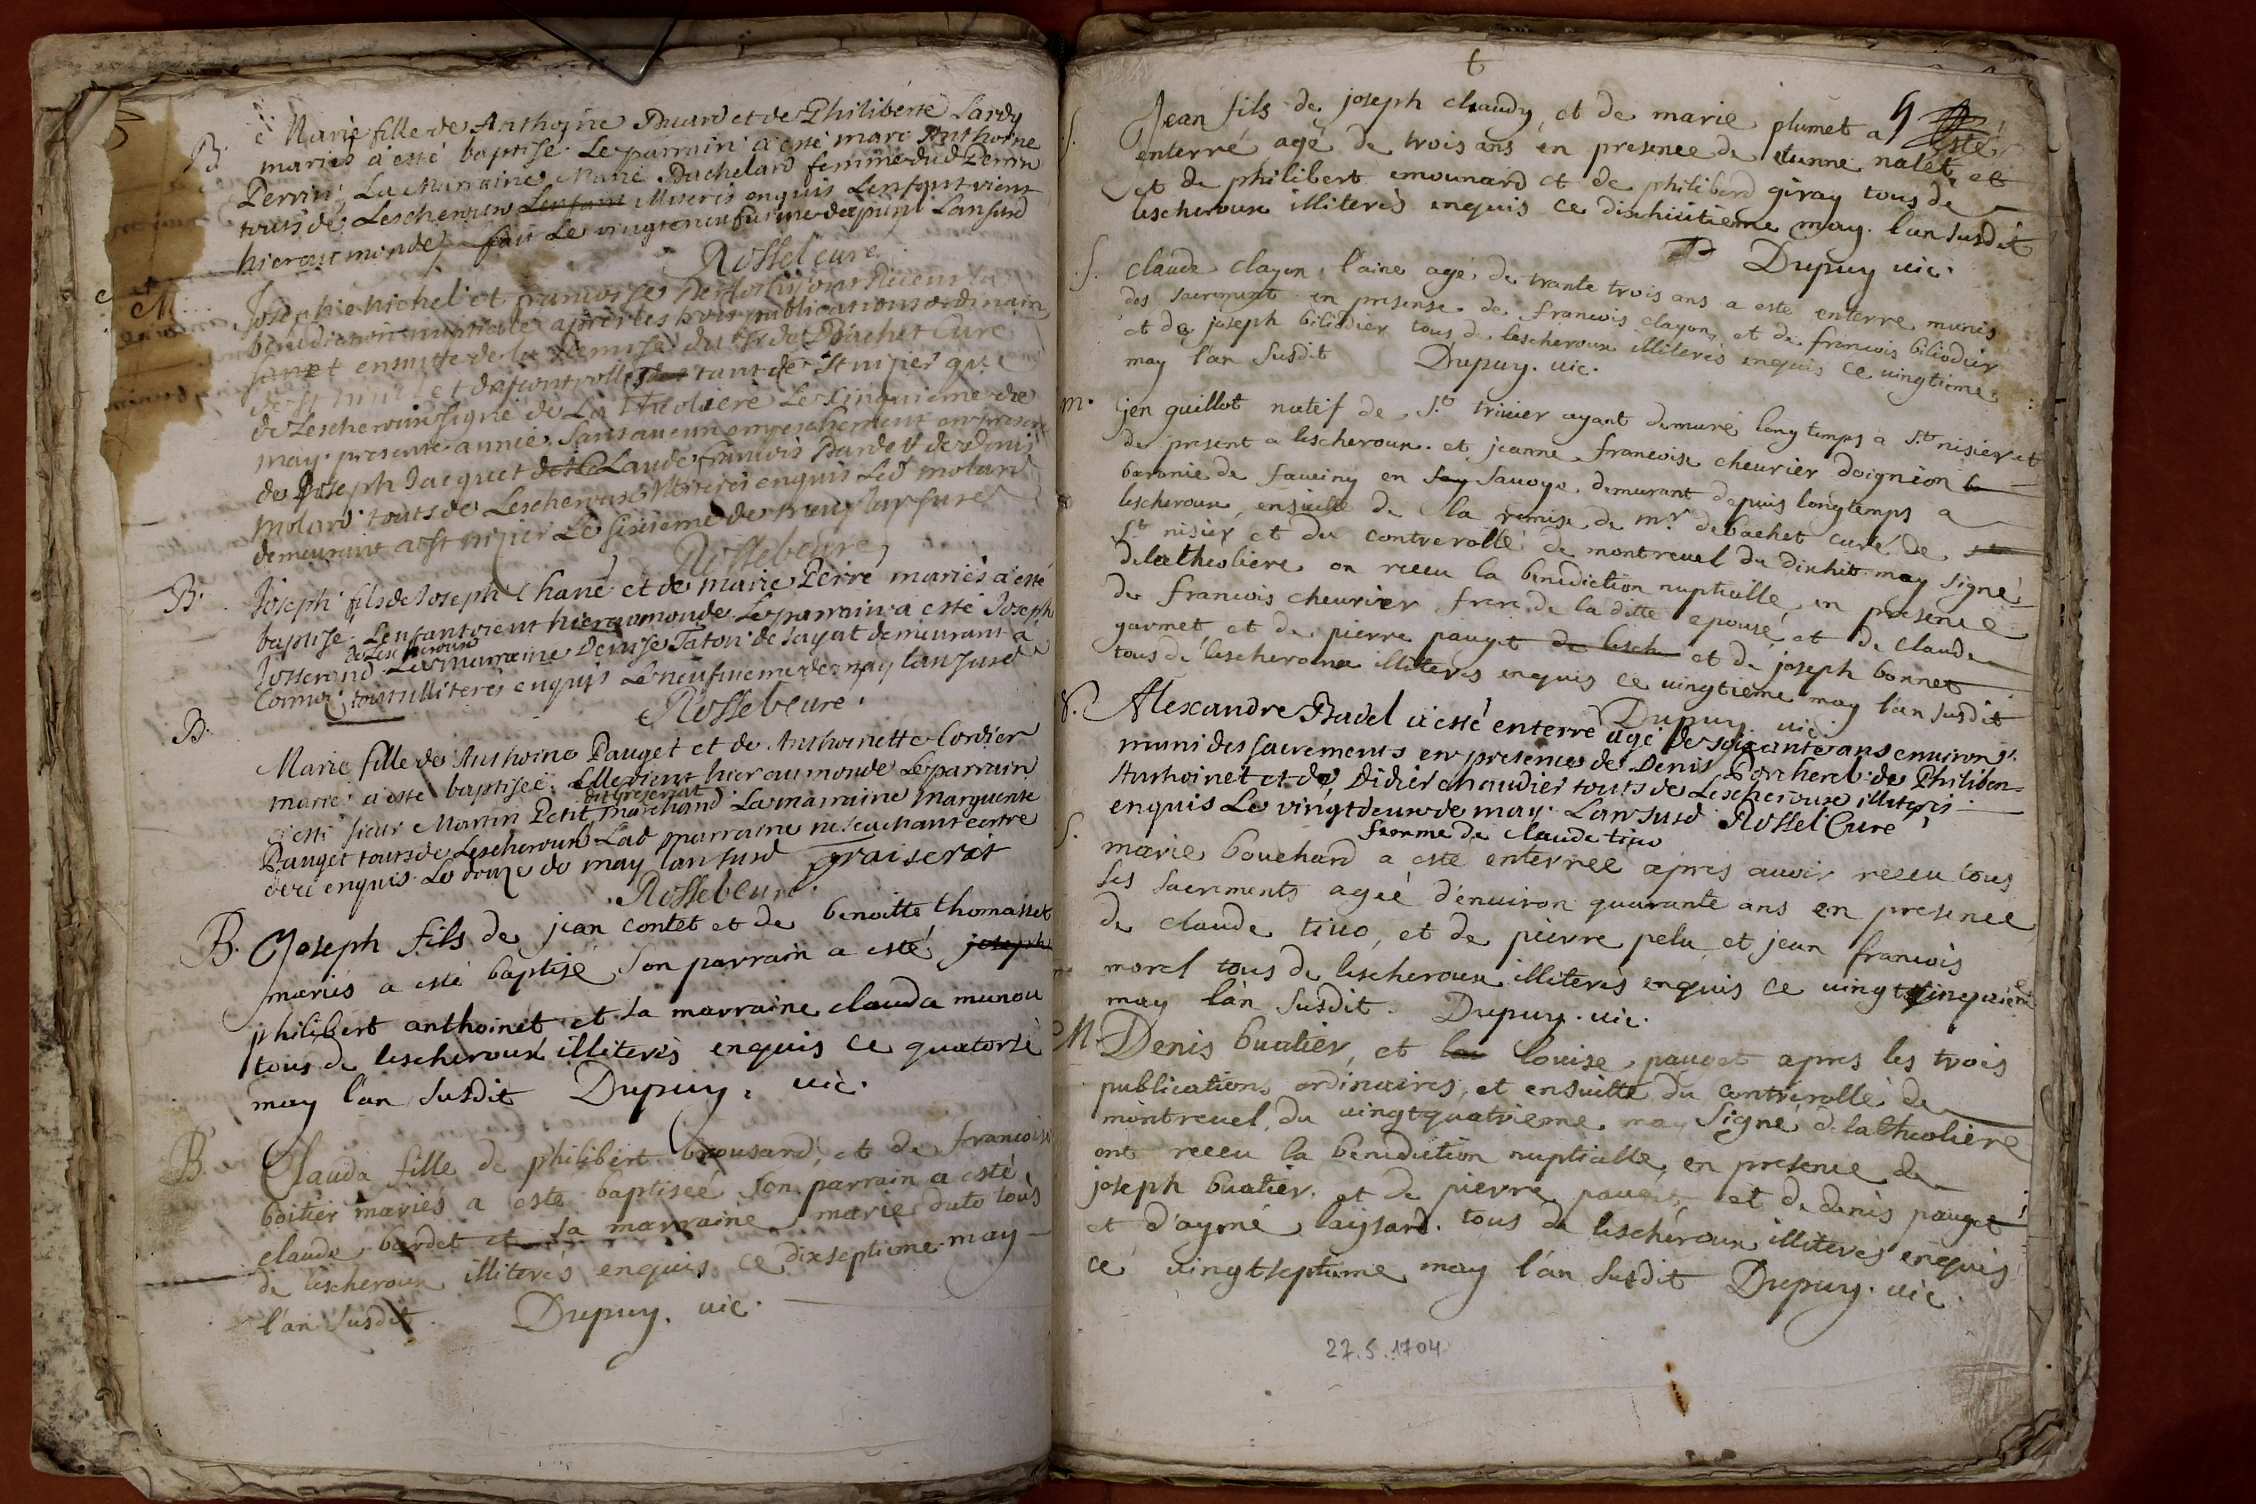 B. Marie fille de Anthoine Buard et de Philiberte Lardy
mariés a esté baptisé. Le parrain a esté marc Anthoine
Perrin, La Marraine Marie Bachelard femme dud Perrin
touts de Lescheroux illiterés enquis Lenfant vient
hier au monde, fait Le vingtneuf
Rossel cure
M. Joseph michel et francoise ont Receu la
benediction nuptialle apres les trois publications ordinaires
et ensuitte de la Remise du Sr de Bachet Cure
et du controlle tant de St nisier que
de Lescheroux signé de La Theoliere Le cinquieme de
may presente année, Sans aucun empeschement en presence
de Joseph Jacquet de Claude francois Bardet de Denis
molard touts de Lescheroux illiteres enquis Led molard
demeurant a St nizier Le sixieme de may
Rossel cure
B. Joseph fils de Joseph Chane et de marie Perre mariés a esté
baptisé. Lenfant vient hier au monde. Le parrain a esté Joseph
de Lescheroux
Josserand La marraine Denise Taton de Jayat demeurant a
Cormoz, touts illiterés enquis Le neufvieme de may lan susd
Rossel cure.
B. Marie fille de Anthoine Pauget et de Anthoinette Cordier
mariés a esté baptiseé. Elle vient hier au monde Le parrain
dit Greseriat
a esté sieur Martin Petit, marchand. La marraine Marguerite
Pauget touts de Lescheroux Lad marraine ne scachant ecrire
enquis. Le douze de may lan susd graiserat
Rossel cure.
B. Joseph fils de jean contet et de benoitte thomasset
mariés a esté baptisé son parrain a esté joseph
philibert anthoinet et sa marraine clauda munou
tous de lescheroux illiterés enquis ce quatorsé
may l'an susdit Dupuy. vic.
B. Clauda fille de philibert brousard, et de francoise
boitier mariés a esté baptiseé son parrain a esté
claude bardet et sa marraine marie duto tous
de lescheroux illiterés enquis ce dixseptieme may
l'an susdit. Dupuy. vic.
t
5
S. Jean fils de joseph chaudy, et de marie plumet a esté
enterré agé de trois ans en presence de etienne nalet et
et de philibert emounard et de philiberd giray tous de
lescheroux illiterés enquis ce dixhuitieme may. l'an susdit
Dupuy vic.
S. claude clayon l'ainé agé de trante trois ans a esté enterré munis
des sacrement en presense de francois clayon, et de francois biliodier
et de joseph biliodier tous de lescheroux illiterés enquis ce vingtieme
may l'an susdit Dupuy. vic.
m. jen guillot natif de St trivier ayant demuré long temps a St nisier et
de present a lescheroux. et jeanne francoise cheurier doignion
baronie de fauciny en Savoye. demurant depuis longtemps a
lescheroux, ensuitte de la remise de mr debachet curé de
St nisier et du contrerollé de montreuel du dixhit may signé
delatheoliere on receu la benediction nuptialle en presence
de francois cheurier frere de la ditte epousé et de claude
garmet et de pierre pauget de lesch et de joseph bonnet
tous de lescheroux illiterés enquis ce vingtieme may l'an susdit
Dupuy vic.
S. Alexandre Badel a esté enterré agé de soixante ans environ
muni des sacrements en presence de Denis Porcherel de Philibert
Anthoinet et de Didier chaudier touts de Lescheroux illiterés
enquis Le vingtdeux de may. Lan susd Rossel Curé
femme de claude tiuo
S. marie bouchard a esté enterreé apres auoir receu tous
ses sacrements ageé d'enuiron quarante ans en presence
de claude tiuo, et de pierre pelu et jean francois
morel tous de lescheroux illiterés enquis ce vingtcinquieme
may l'an susdit. Dupuy. vic.
M. Denis buatier, et lou louise pauget apres les trois
publications ordinaires, et ensuitte du contrerollé de
montreuel, du vingtquatrieme may signé delatheoliere
ont receu la benediction nuptialle, en presence de
joseph buatier. et de pierre pauget et de denis pauget
et d'aymé laysard. tous de lescheroux illiterés enquis
ce vingtseptieme may l'an susdit Dupuy. vic.
27.5.1704